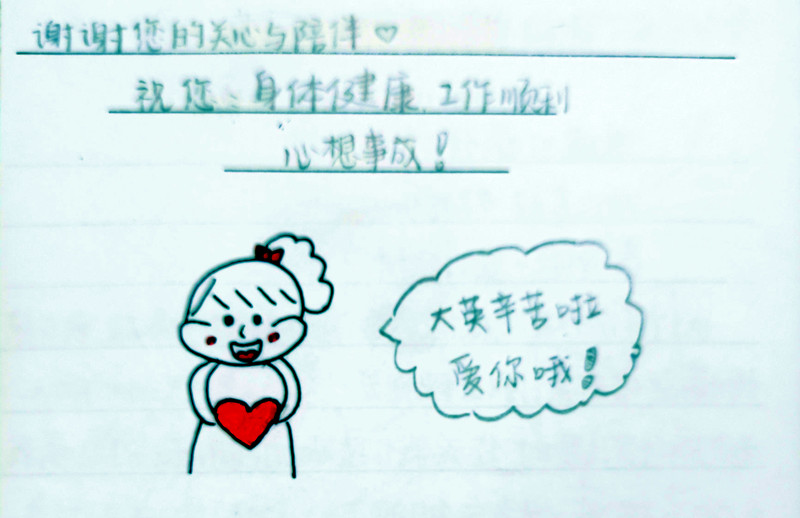 谢谢您的关心与陪伴♡
祝您:身体健康,工作顺利
心想事成!
大英辛苦啦
爱你哦!